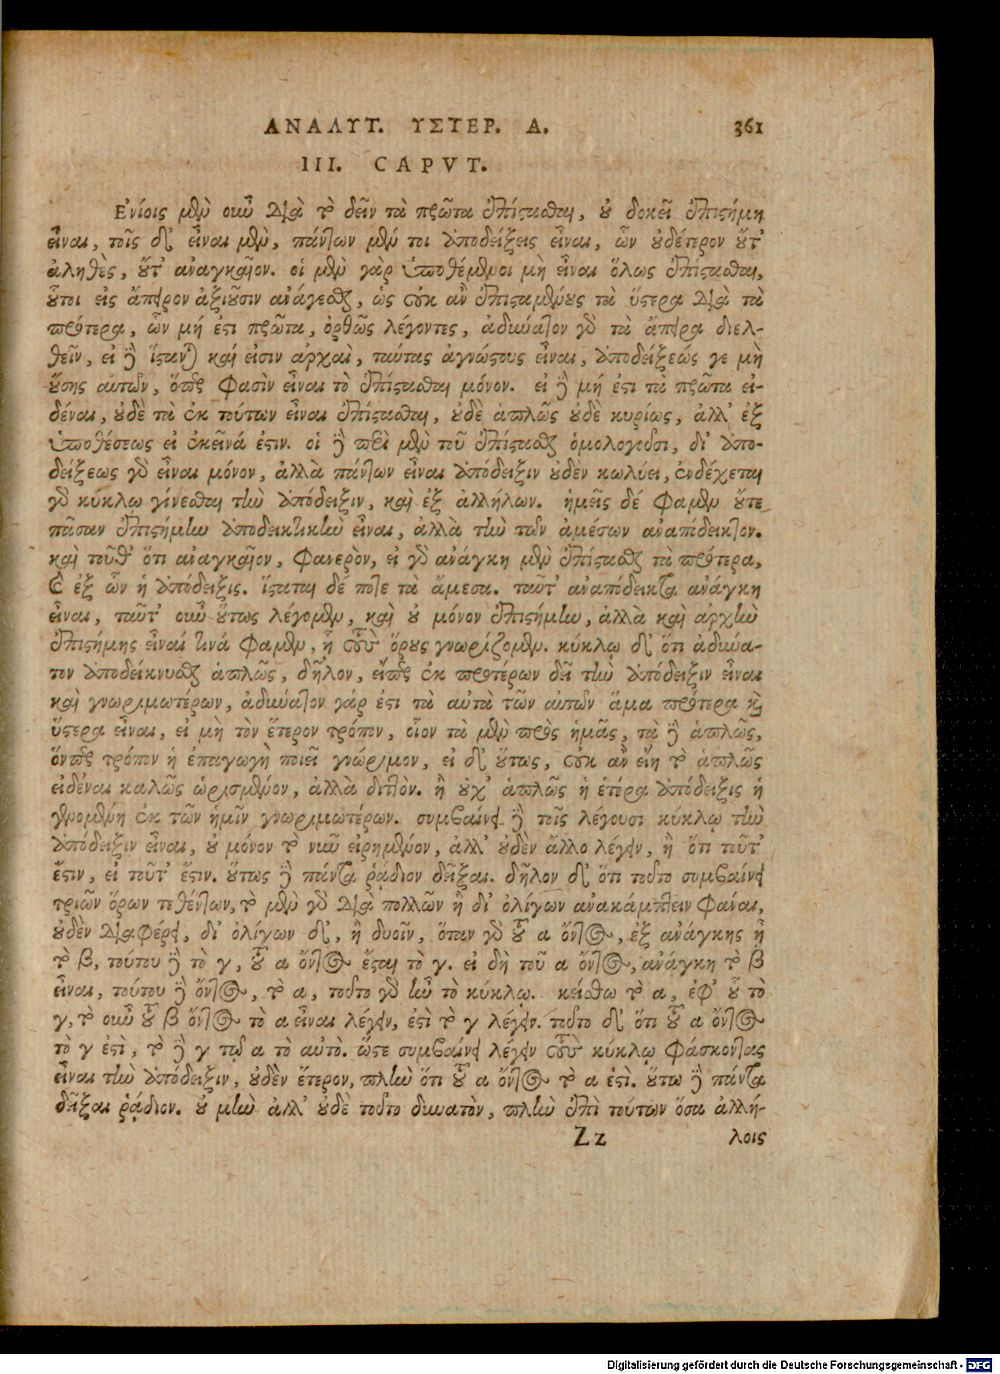 ΑΝΑΛΥΤ. ΥΣΤΕΡ. Α. 361
III. CAPVT.
Ἐνίοις μὲν οὖν διὰ τὸ δεῖν τὰ πρῶτα ἐπίστασθαι, οὐ δοκεῖ ἐπιστήμη
εἶναι, τοῖς δ' εἶναι μὲν, πάντων μέν τοι ἀποδείξεις εἶναι, ὧν οὐδέτερον οὔτ'
ἀληθὲς, οὔτ' ἀναγκαῖον. οἱ μὲν γὰρ ὑποθέμενοι μὴ εἶναι ὅλως ἐπίστασθαι,
οὗτοι εἰς ἄπειρον ἀξιοῦσιν ἀνάγεσθαι, ὡς οὐκ ἂν ἐπισταμένους τὰ ὕστερα διὰ τὰ
πρότερα, ὧν μή ἐστι πρῶτα, ὀρθῶς λέγοντες, ἀδύνατον γὰρ τὰ ἄπειρα διελ-
θεῖν, εἰ δὲ ἵσταται καί εἰσιν ἀρχαὶ, ταύτας ἀγνώστους εἶναι, ἀποδείξεώς γε μὴ
οὔσης αὐτῶν, ὅπερ φασὶν εἶναι τὸ ἐπίστασθαι μόνον. εἰ δὲ μή ἐστι τὰ πρῶτα εἰ-
δέναι, οὐδὲ τὰ ἐκ τούτων εἶναι ἐπίστασθαι, οὐδὲ ἁπλῶς οὐδὲ κυρίως, ἀλλ' ἐξ
ὑποθέσεως εἰ ἐκεῖνά ἐστιν. οἱ δὲ περὶ μὲν τοῦ ἐπίστασθαι ὁμολογοῦσι, δι' ἀπο-
δείξεως γὰρ εἶναι μόνον, ἀλλὰ πάντων εἶναι ἀπόδειξιν οὐδὲν κωλύει, ἐνδέχεται
γὰρ κύκλῳ γίνεσθαι τὴν ἀπόδειξιν, καὶ ἐξ ἀλλήλων. ἡμεῖς δέ φαμεν οὔτε
πᾶσαν ἐπιστήμην ἀποδεικτικὴν εἶναι, ἀλλὰ τὴν τῶν ἀμέσων ἀναπόδεικτον.
καὶ τοῦθ' ὅτι ἀναγκαῖον, φανερὸν, εἰ γὰρ ἀνάγκη μὲν ἐπίστασθαι τὰ πρότερα,
καὶ ἐξ ὧν ἡ ἀπόδειξις. ἵσταται δέ ποτε τὰ ἄμεσα. ταῦτ' ἀναπόδεικτα ἀνάγκη
εἶναι, ταῦτ' οὖν οὕτως λέγομεν, καὶ οὐ μόνον ἐπιστήμην, ἀλλὰ καὶ ἀρχὴν
ἐπιστήμης εἶναί τινά φαμεν, ᾗ τοὺς ὅρους γνωρίζομεν. κύκλῳ δ' ὅτι ἀδύνα-
τον ἀποδείκνυσθαι ἁπλῶς, δῆλον, εἴπερ ἐκ προτέρων δεῖ τὴν ἀπόδειξιν εἶναι
καὶ γνωριμωτέρων, ἀδύνατον γάρ ἐστι τὰ αὐτὰ τῶν αὐτῶν ἅμα πρότερα καὶ
ὕστερα εἶναι, εἰ μὴ τὸν ἕτερον τρόπον, οἷον τὰ μὲν πρὸς ἡμᾶς, τὰ δὲ ἁπλῶς,
ὅνπερ τρόπον ἡ ἐπαγωγὴ ποιεῖ γνώριμον, εἰ δ' οὕτως, οὐκ ἂν εἴη τὸ ἁπλῶς
εἰδέναι καλῶς ὡρισμένον, ἀλλὰ διττὸν. ἢ οὐχ' ἁπλῶς ἡ ἑτέρα ἀπόδειξις ἡ
γινομένη ἐκ τῶν ἡμῖν γνωριμωτέρων. συμβαίνει δὲ τοῖς λέγουσι κύκλῳ τὴν
ἀπόδειξιν εἶναι, οὐ μόνον τὸ νῦν εἰρημένον, ἀλλ' οὐδὲν ἄλλο λέγειν, ἢ ὅτι τοῦτ'
ἔστιν, εἰ τοῦτ' ἔστιν. οὕτως δὲ πάντα ῥάδιον δεῖξαι. δῆλον δ' ὅτι τοῦτο συμβαίνει
τριῶν ὅρων τεθέντων, τὸ μὲν γὰρ διὰ πολλῶν ἢ δι' ὀλίγων ἀνακάμπτειν φάναι,
οὐδὲν διαφέρει, δι' ὀλίγων δ', ἢ δυοῖν, ὅταν γὰρ τοῦ α ὄντος, ἐξ ἀνάγκης ᾖ
τὸ β, τούτου δὲ τὸ γ, τοῦ α ὄντος ἔσται τὸ γ. εἰ δὴ τοῦ α ὄντος, ἀνάγκη τὸ β
εἶναι, τούτου δὲ ὄντος, τὸ α, τοῦτο γὰρ ἦν τὸ κύκλῳ. κείσθω τὸ α, ἐφ' οὗ τὸ
γ, τὸ οὖν τοῦ β ὄντος τὸ α εἶναι λέγειν, ἐστὶ τὸ γ λέγειν. τοῦτο δ' ὅτι τοῦ α ὄντος
τὸ γ ἐστὶ, τὸ δὲ γ τῷ α τὸ αὐτὸ. ὥστε συμβαίνει λέγειν τοὺς κύκλῳ φάσκοντας
εἶναι τὴν ἀπόδειξιν, οὐδὲν ἕτερον, πλὴν ὅτι τοῦ α ὄντος τὸ α ἐστὶ. οὕτω δὲ πάντα
δεῖξαι ῥάδιον. οὐ μὴν ἀλλ' οὐδὲ τοῦτο δυνατὸν, πλὴν ἐπὶ τούτων ὅσα ἀλλή-
Zz λοις
Digitalisierung gefördert durch die Deutsche Forschungsgemeinschaft - DFG